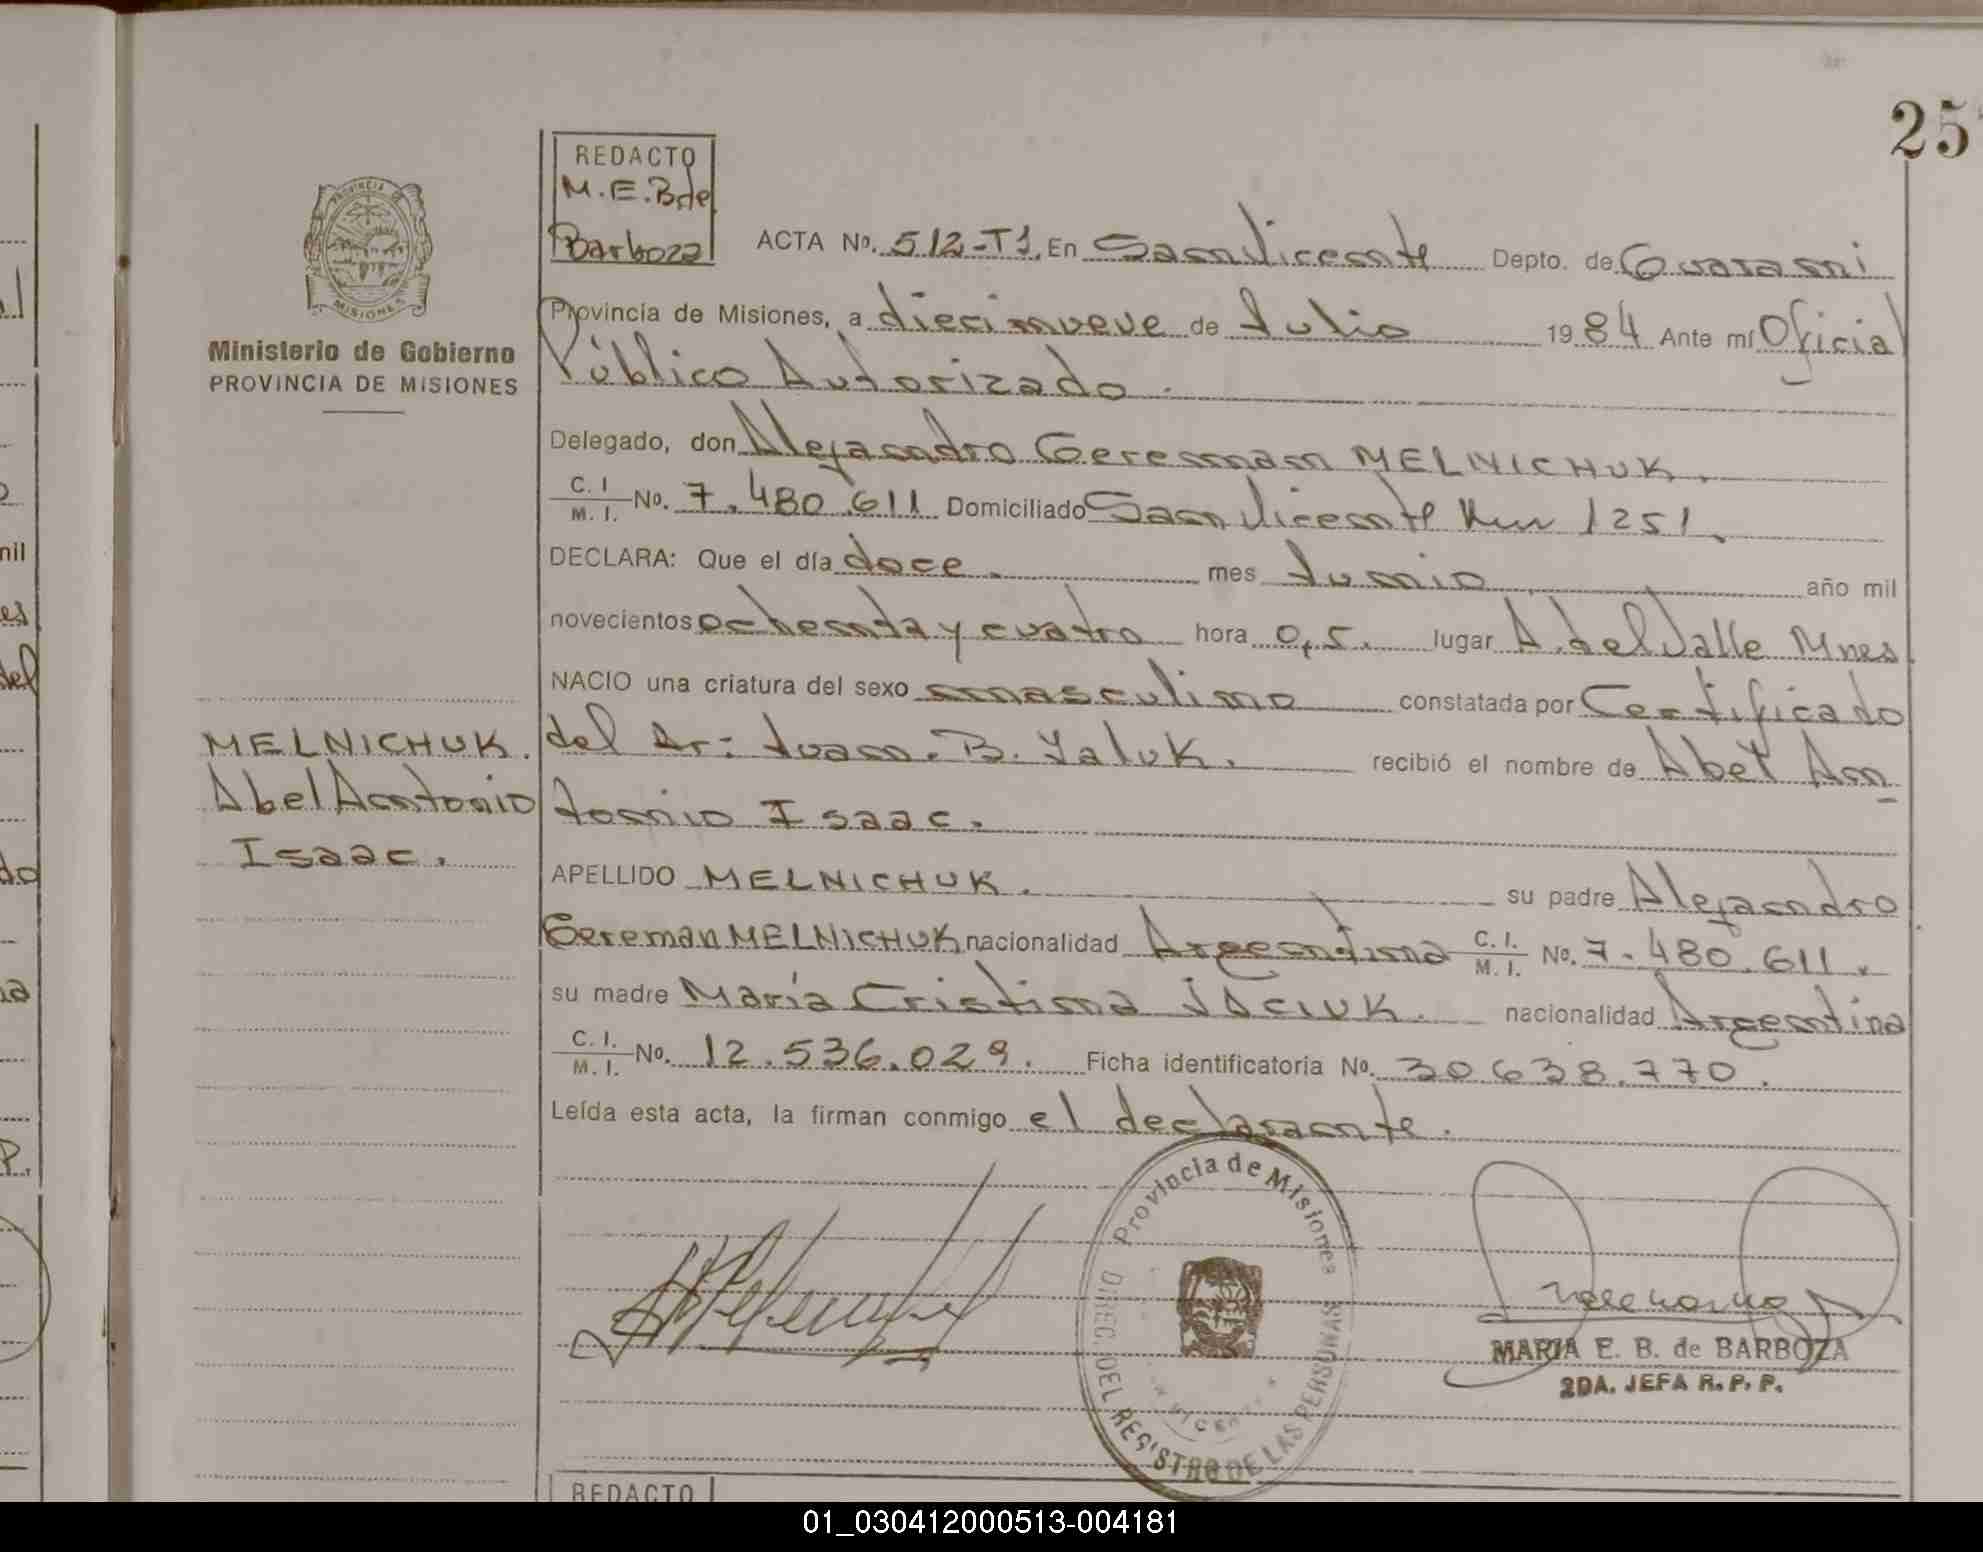 257
REDACTO
M.E.B de
Barboza
ACTA No. 512-T1. En San Vicente Depto. de Guarani
Provincia de Misiones, a diecinueve de Julio 1984 Ante mí Oficial
Público Autorizado.
Delegado, don Alejandro Gereman MELNICHUK.
C. I. / M. I. No. 7.480.611 Domiciliado San Vicente Km 1251.
DECLARA: Que el día doce. mes Junio año mil
novecientos ochenta y cuatro hora 0,5. lugar A. del Valle Mnes
NACIO una criatura del sexo masculino constatada por Certificado
del Dr: Juan. B. Yaluk. recibió el nombre de Abel An_
tonio Isaac.
APELLIDO MELNICHUK. su padre Alejandro
Gereman MELNICHUK nacionalidad Argentina C. I. / M. I. No. 7.480.611.
su madre María Cristina JACIUK. nacionalidad Argentina
C. I. / M. I. No. 12.536.029. Ficha identificatoria No. 30.638.770.
Leída esta acta, la firman conmigo el declarante.
PROVINCIA DE
MISIONES
Ministerio de Gobierno
PROVINCIA DE MISIONES
MELNICHUK.
Abel Antonio
Isaac.
Provincia de Misiones
DIREC. DEL REGISTRO DE LAS PERSONAS
MARIA E. B. de BARBOZA
2DA. JEFA R. P. P.
REDACTO
01_030412000513-004181